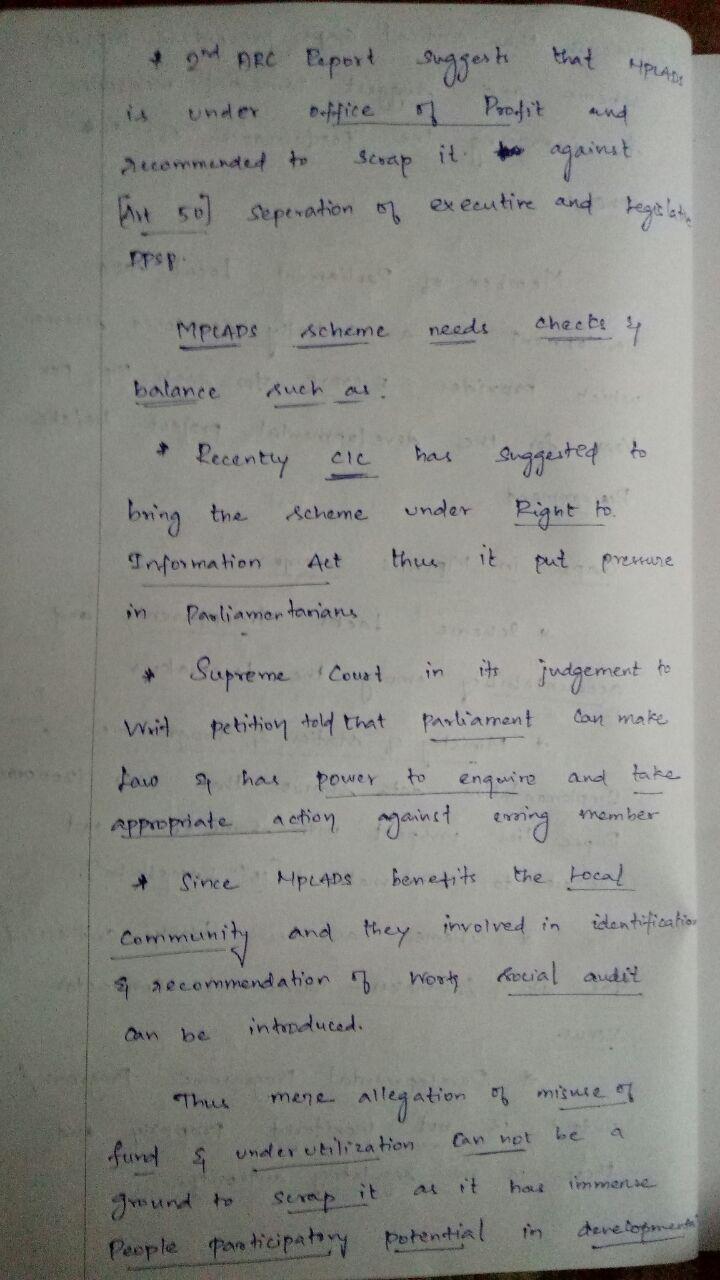 * 2nd ARC Report suggests that MPLADS
is under office of Profit and
recommended to scrap it against
[Art 50] seperation of executive and Legislative
DPSP.
MPLADS scheme needs checks &
balance such as.
* Recently CIC has suggested to
bring the scheme under Right to
Information Act thus it put pressure
in Parliamentarians
* Supreme Court in its judgement to
Writ petition told that parliament can make
law & has power to enquire and take
appropriate action against erring member
* Since MPLADS benefits the local
community and they involved in identification
& recommendation of work social audit
can be introduced.
Thus mere allegation of misuse of
fund & under utilization can not be a
ground to scrap it as it has immense
People participatory potential in developmental